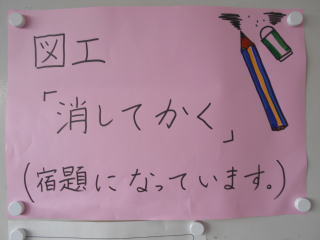 図工
「消してかく」
(宿題になっています。)